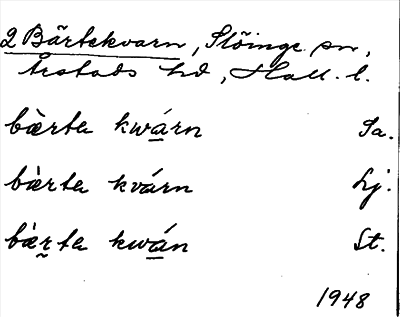 2 Bärtekvarn, Slöinge sn,
Årstads hd, Hall. l.
bàrta kwárn Sa.
bàrta kvárn Lj.
bàrta kwán St.
1948